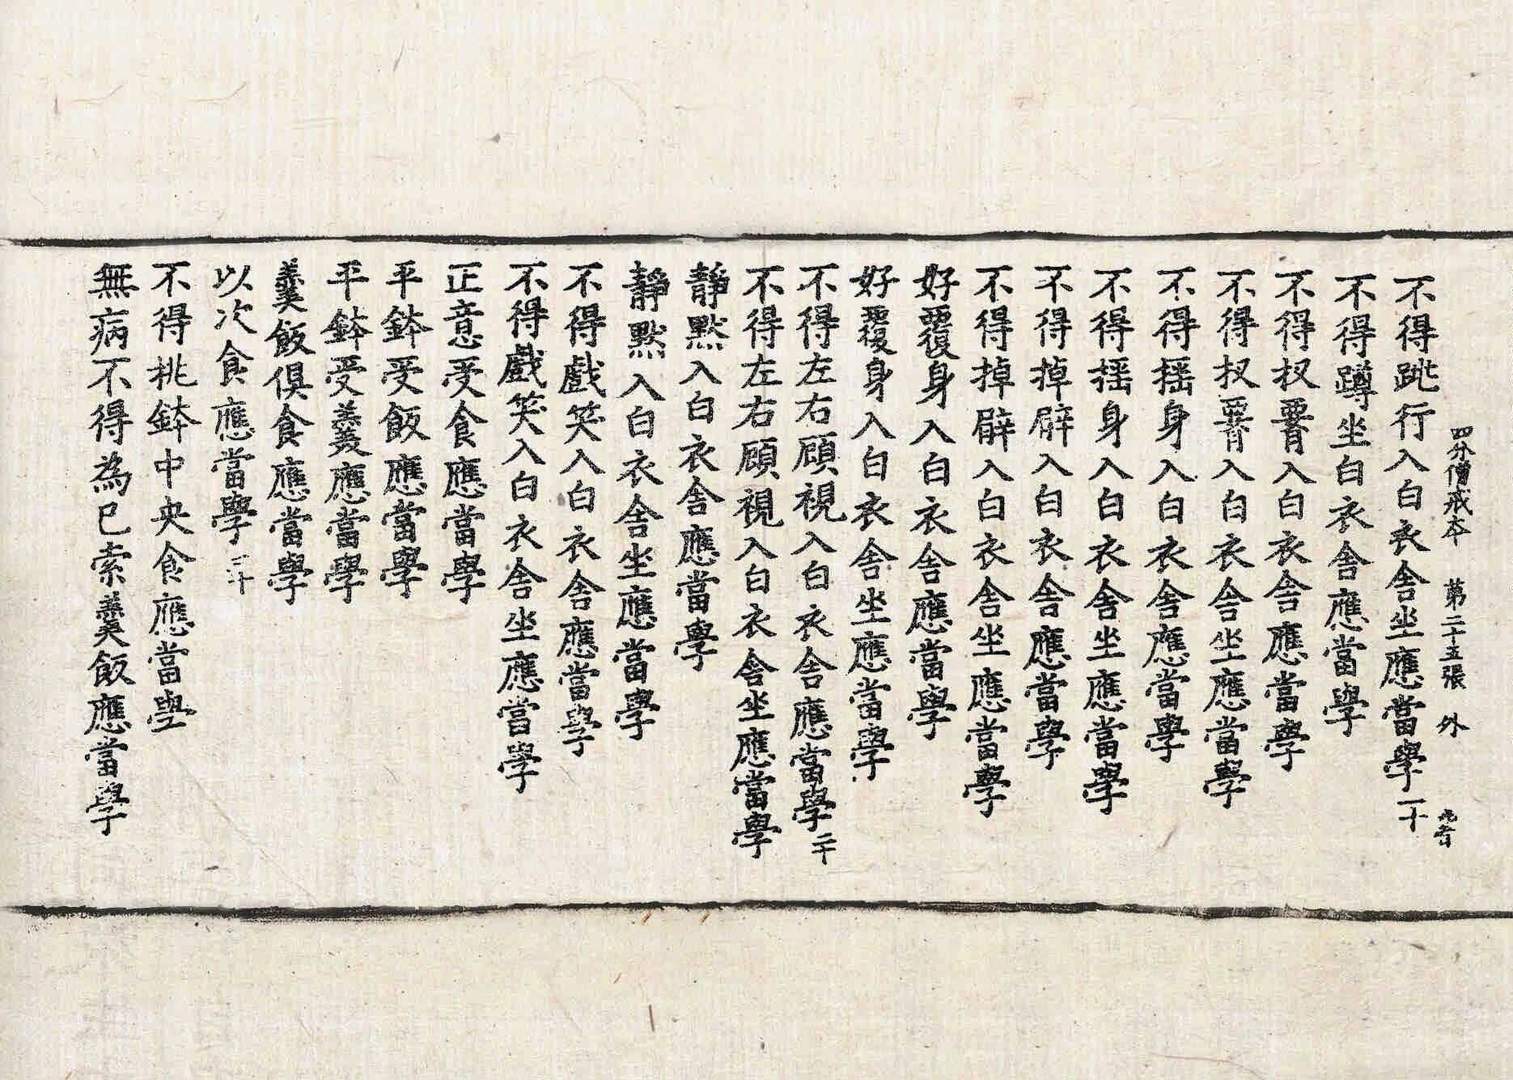 四分僧戒本 第二十五張 外
不得跳行入白衣舍坐應當學一十
不得蹲坐白衣舍應當學
不得扠𦝫入白衣舍應當學
不得扠𦝫入白衣舍坐應當學
不得搖身入白衣舍應當學
不得搖身入白衣舍坐應當學
不得掉臂入白衣舍應當學
不得掉臂入白衣舍坐應當學
好覆身入白衣舍應當學
好覆身入白衣舍坐應當學
不得左右顧視入白衣舍應當學二十
不得左右顧視入白衣舍坐應當學
靜默入白衣舍應當學
靜默入白衣舍坐應當學
不得戲笑入白衣舍應當學
不得戲笑入白衣舍坐應當學
正意受食應當學
平鉢受飯應當學
平鉢受羹應當學
羹飯俱食應當學
以次食應當學三十
不得挑鉢中央食應當學
無病不得為己索羹飯應當學